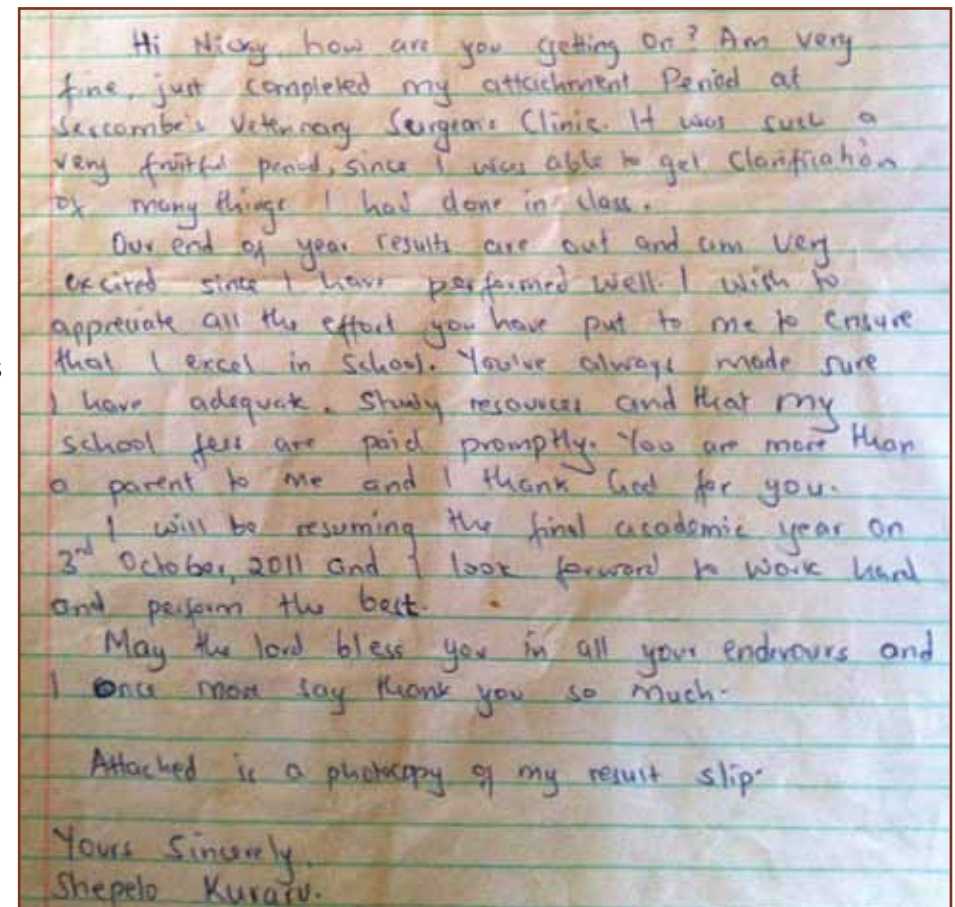 Hi Nicky, how are you getting on? Am very
fine, just completed my attachment Period at
Sercombe's Veterinary Surgeons Clinic. It was such a
very fruitful period, since I was able to get Clarification
of many things I had done in class.
Our end of year results are out and am very
excited since I have performed well. I wish to
appreciate all the effort you have put to me to ensure
that I excel in School. You've always made sure
I have adequate. Study resources and that my
school fees are paid promptly. You are more than
a parent to me and I thank God for you.
I will be resuming the final academic year on
3rd October, 2011 and I look forward to work hard
and perform the best.
May the lord bless you in all your endevours and
I once more say thank you so much.
Attached is a photocopy of my result slip.
Yours Sincerely,
Shepelo
s